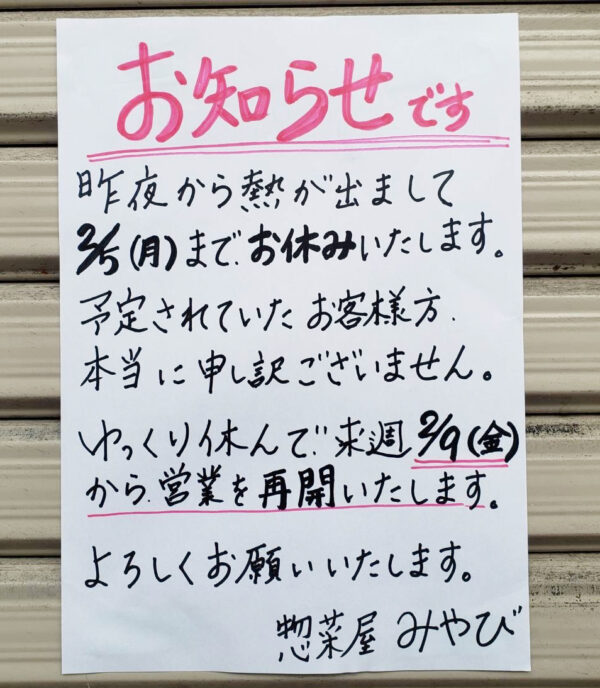 お知らせです
昨夜から熱が出まして
2/5(月)まで、お休みいたします。
予定されていたお客様方、
本当に申し訳ございません。
ゆっくり休んで、来週2/9(金)
から、営業を再開いたします。
よろしくお願いいたします。
惣菜屋 みやび